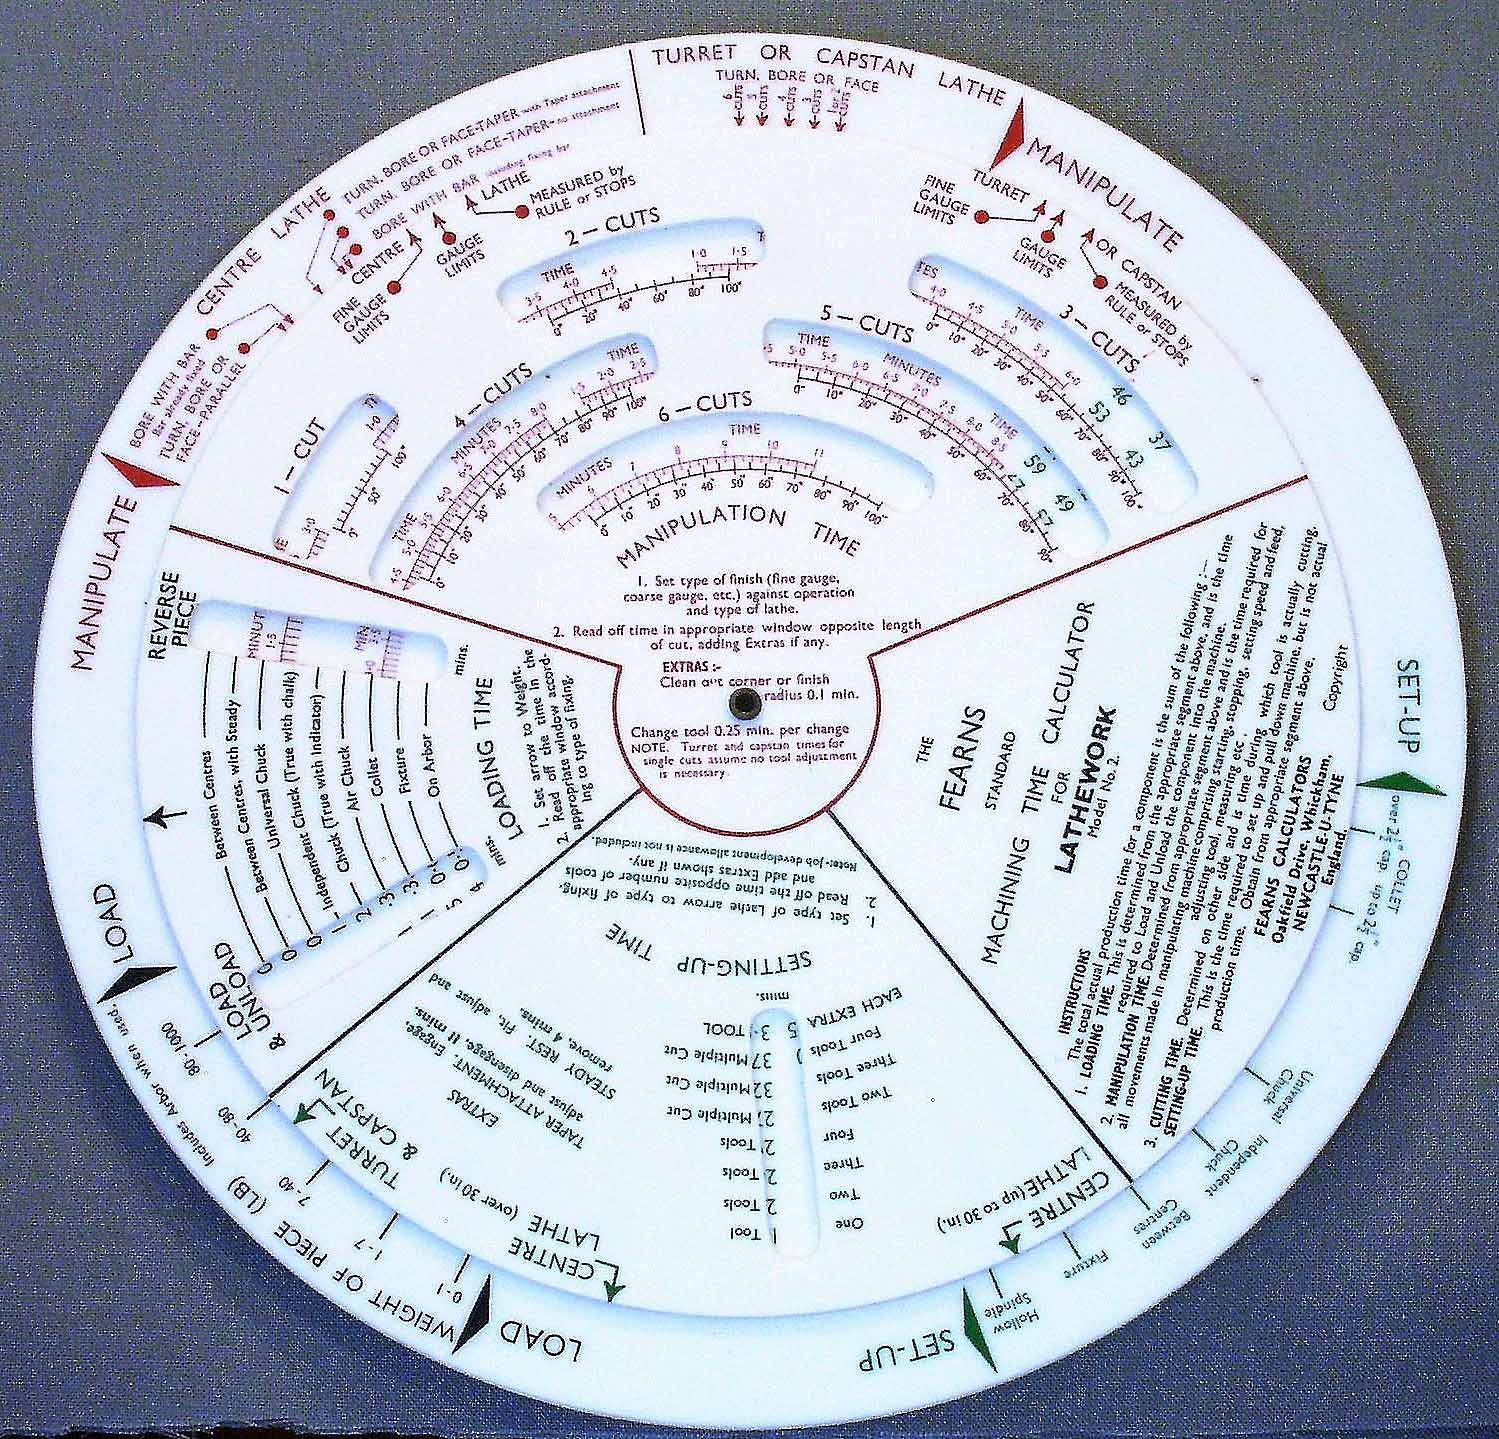 TURRET OR CAPSTAN LATHE
TURN, BORE OR FACE
6 CUTS
5 CUTS
4 CUTS
3 CUTS
CUTS
MANIPULATE
CENTRE LATHE
TURN, BORE OR FACE-TAPER with Taper attachment
TURN, BORE OR FACE-TAPER- no attachment
BORE WITH BAR including fixing bar
BORE WITH BAR
Bar already fixed
TURN, BORE OR
FACE-PARALLEL
MANIPULATE
CENTRE LATHE
FINE
GAUGE
LIMITS
GAUGE
LIMITS
MEASURED by
RULE or STOPS
TURRET OR CAPSTAN
FINE
GAUGE
LIMITS
GAUGE
LIMITS
MEASURED by
RULE or STOPS
1 - CUT
3·0 1·0
0" 50" 100"
2 - CUTS
TIME
3·5 4·0 4·5 1·0 1·5
0" 20" 40" 60" 80" 100"
3 - CUTS
TIME
4·0 4·5 5·0 5·5 6·0
0" 10" 20" 30" 40" 50" 60" 70" 80" 90" 100"
46 53 37 43
4 - CUTS
TIME MINUTES TIME
4·5 5·0 5·5 6·0 6·5 7·0 7·5 8·0 1·5 2·0 2·5
0" 10" 20" 30" 40" 50" 60" 70" 80" 90" 100"
5 - CUTS
TIME MINUTES TIME
5·0 5·5 6·0 6·5 7·0 7·5 8·0 8·5
0" 10" 20" 30" 40" 50" 60" 70" 80" 90"
59 47 49 57
6 - CUTS
MINUTES TIME
5 6 7 8 9 10 11
0" 10" 20" 30" 40" 50" 60" 70" 80" 90" 100"
MANIPULATION TIME
1. Set type of finish (fine gauge,
coarse gauge, etc.) against operation
and type of lathe.
2. Read off time in appropriate window opposite length
of cut, adding Extras if any.
EXTRAS :-
Clean out corner or finish
radius 0.1 min.
Change tool 0.25 min. per change
NOTE. Turret and capstan times for
single cuts assume no tool adjustment
is necessary.
REVERSE
PIECE
mins.
Between Centres
Between Centres, with Steady
Universal Chuck
Independent Chuck (True with chalk)
Chuck (True with Indicator)
Air Chuck
Collet
Fixture
On Arbor
mins.
LOAD
& UNLOAD
LOADING TIME
1. Set arrow to Weight.
2. Read off the time in the
appropriate window accord-
ing to type of fixing.
LOAD
80-1000
40-80
7-40
1-7
0-1
Includes Arbor when used.
WEIGHT OF PIECE (LB)
LOAD
SETTING-UP TIME
1. Set type of Lathe arrow to type of fixing.
2. Read off the time opposite number of tools
and add Extras shown if any.
Note:- Job development allowance is not included.
EXTRAS
TAPER ATTACHMENT. Engage,
adjust and disengage, 11 mins.
STEADY REST. Fit, adjust and
remove, 4 mins.
TURRET & CAPSTAN
CENTRE
LATHE (over 30 in.)
CENTRE
LATHE (up to 30 in.)
One Tool
Two Tools
Three Tools
Four Tools
Two Tools Multiple Cut
Three Tools Multiple Cut
Four Tools Multiple Cut
EACH EXTRA TOOL
mins.
SET-UP
Hollow
Spindle
Fixture
Between
Centres
Independent
Chuck
Universal
Chuck
COLLET
up to 2½" cap.
over 2½" cap.
SET-UP
THE
FEARNS
STANDARD
MACHINING TIME CALCULATOR
FOR
LATHEWORK
Model No. 2.
INSTRUCTIONS
The total actual production time for a component is the sum of the following :-
1. LOADING TIME. This is determined from the appropriate segment above, and is the time
required to Load and Unload the component into the machine.
2. MANIPULATION TIME. Determined from appropriate segment above and is the time required for
all movements made in manipulating machine comprising starting, stopping, setting speed and feed,
adjusting tool, measuring etc.
3. CUTTING TIME. Determined on other side and is time during which tool is actually cutting.
SETTING-UP TIME. This is the time required to set up and pull down machine, but is not actual
production time. Obtain from appropriate segment above.
FEARNS CALCULATORS
Oakfield Drive, Whickham,
NEWCASTLE-U-TYNE
England.
Copyright